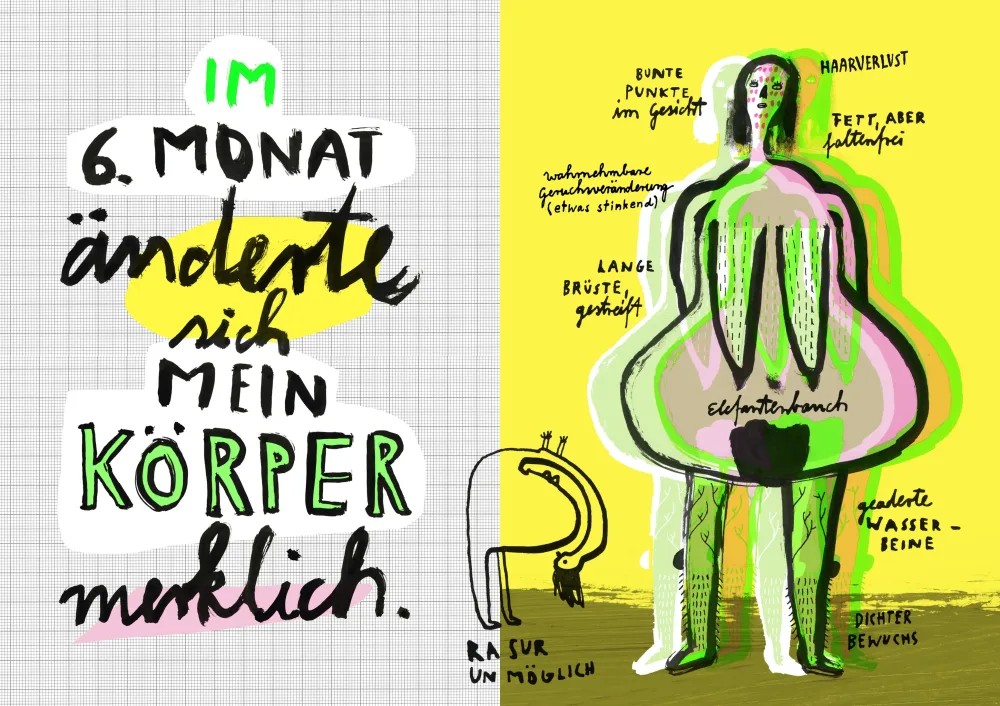 IM
6. MONAT
änderte
sich
MEIN
KÖRPER
merklich.
BUNTE
PUNKTE
im Gesicht
HAARVERLUST
FETT, ABER
faltenfrei
wahrnehmbare
Geruchsveränderung
(etwas stinkend)
LANGE
BRÜSTE,
gestreift
Elefantenbauch
geaderte
WASSER-
BEINE
DICHTER
BEWUCHS
RASUR
UNMÖGLICH